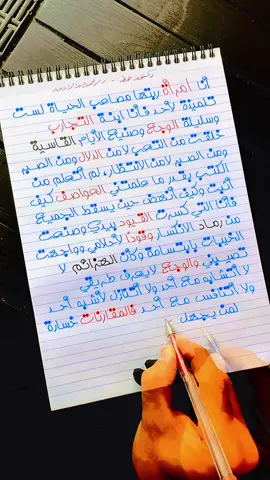 أنا امرأة ربتها مصاعب الحياة لست
تلميذة لأحد فأنا ابنة التجارب
وسليلة الوجع وصنيع الأيام القاسية
خلقت من التعب لا من الدلال ومن الصبر
ومن الصبر لا من الانتظار، لم أتعلم من
الكتب بقدر ما علمتني العواصف كيف
أثبت وكيف أنهض حين يسقط الجميع
فأنا التي كسرت القيود بيدي وصنعت
من رماد الانكسار وقودا لأحلامي وواجهت
الخيبات بابتسامة وكأن الهزائم لا
تصيبني والوجع لا يعرف طريقي
لا أتشابه مع أحد ولا أتنازل لأشبه أحد
ولا أتنافس مع أحد فالمقارنات خسارة
لمن يجهل